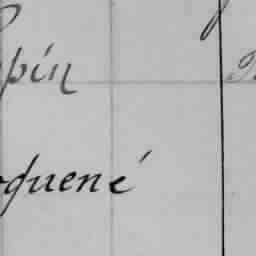 pin
quené